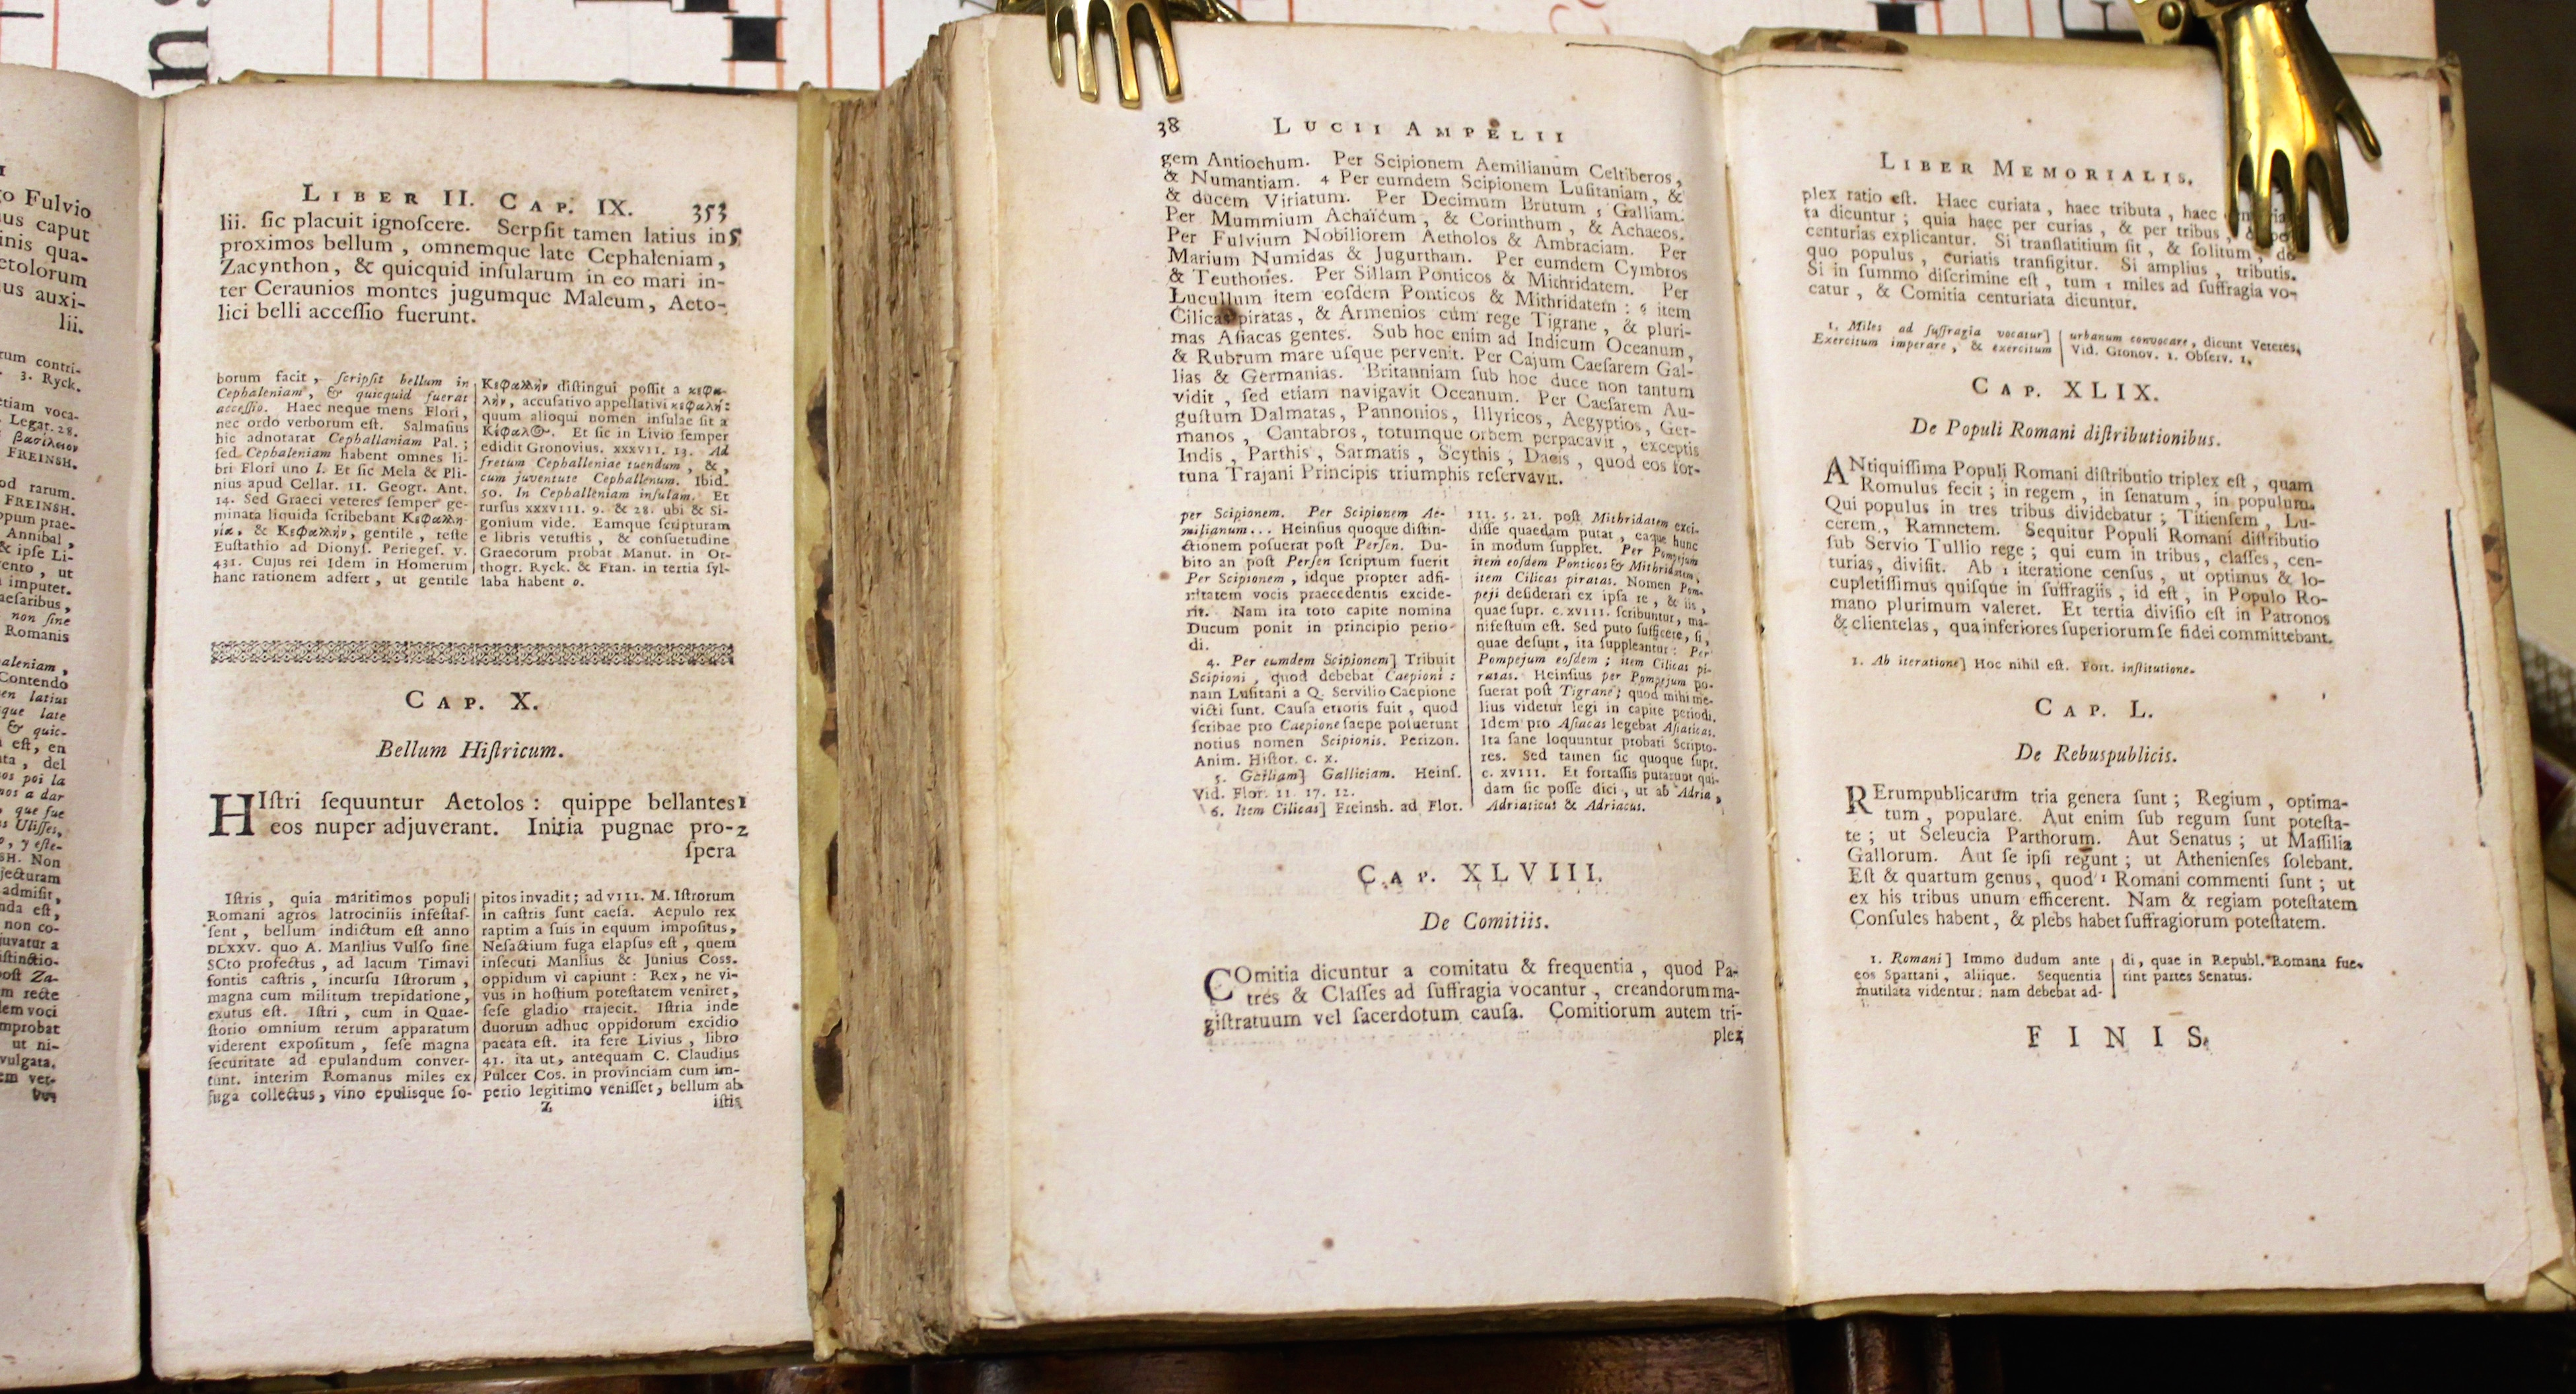 o Fulvio
us caput
inis qua-
etolorum
us auxi-
lii.
rum contri-
3. Ryck.
etiam voca-
Legat. 28.
βασίλειον
FREINSH.
od rarum.
FREINSH.
ppum prae-
Annibal,
& ipſe Li-
ento, ut
imputet.
aeſaribus,
non ſine
Romanis
aleniam,
Contendo
en latius
que late
& quic-
eſt, en
ta, del
os poi la
nos a dar
, que fue
s Uliſſes,
o, y eſte-
SH. Non
jecturam
admiſit,
nda eſt,
non co-
juvatur a
iſtinctio-
poſt Za-
m recte
lem voci
mprobat
ut ni-
vulgata.
em ver-
LIBER II. CAP. IX. 353
lii. ſic placuit ignoſcere. Serpſit tamen latius in 5
proximos bellum, omnemque late Cephaleniam,
Zacynthon, & quicquid inſularum in eo mari in-
ter Ceraunios montes jugumque Maleum, Aeto-
lici belli acceſſio fuerunt.
borum facit, ſcripſit bellum in
Cephaleniam, & quicquid fuerat
acceſſio. Haec neque mens Flori,
nec ordo verborum eſt. Salmaſius
hic adnotarat Cephallaniam Pal.;
ſed Cephaleniam habent omnes li-
bri Flori uno l. Et ſic Mela & Pli-
nius apud Cellar. 11. Geogr. Ant.
14. Sed Graeci veteres ſemper ge-
minata liquida ſcribebant Κεφαλλη-
νία, & Κεφαλλήν, gentile, teſte
Euſtathio ad Dionyſ. Periegeſ. v.
431. Cujus rei Idem in Homerum
hanc rationem adfert, ut gentile
Κεφαλλήν diſtingui poſſit a κεφα-
λήν, accuſativo appellativi κεφαλή:
quum alioqui nomen inſulae ſit a
Κέφαλος. Et ſic in Livio ſemper
edidit Gronovius. XXXVII. 13. Ad
fretum Cephalleniae tuendum, &,
cum juventute Cephallenum. Ibid.
50. In Cephalleniam inſulam. Et
rurſus XXXVIII. 9. & 28. ubi & Si-
gonium vide. Eamque ſcripturam
e libris vetuſtis, & conſuetudine
Graecorum probat Manut. in Or-
thogr. Ryck. & Fran. in tertia ſyl-
laba habent o.
CAP. X.
Bellum Hiſtricum.
HIſtri ſequuntur Aetolos: quippe bellantes 1
eos nuper adjuverant. Initia pugnae pro- 2
ſpera
Iſtris, quia maritimos populi
Romani agros latrociniis infeſtaſ-
ſent, bellum indictum eſt anno
DLXXV. quo A. Manlius Vulſo ſine
SCto profectus, ad lacum Timavi
fontis caſtris, incurſu Iſtrorum,
magna cum militum trepidatione,
exutus eſt. Iſtri, cum in Quae-
ſtorio omnium rerum apparatum
viderent expoſitum, ſeſe magna
ſecuritate ad epulandum conver-
tunt. interim Romanus miles ex
fuga collectus, vino epulisque ſo-
pitos invadit; ad VIII. M. Iſtrorum
in caſtris ſunt caeſa. Aepulo rex
raptim a ſuis in equum impoſitus,
Neſactium fuga elapſus eſt, quem
inſecuti Manlius & Junius Coss.
oppidum vi capiunt: Rex, ne vi-
vus in hoſtium poteſtatem veniret,
ſeſe gladio trajecit. Iſtria inde
duorum adhuc oppidorum excidio
pacata eſt. ita fere Livius, libro
41. ita ut, antequam C. Claudius
Pulcer Cos. in provinciam cum im-
perio legitimo veniſſet, bellum ab
Z iſtis
38 LUCII AMPELII
gem Antiochum. Per Scipionem Aemilianum Celtiberos,
& Numantiam. 4 Per eumdem Scipionem Luſitaniam, &
& ducem Viriatum. Per Decimum Brutum 5 Galliam.
Per Mummium Achaïcum, & Corinthum, & Achaeos.
Per Fulvium Nobiliorem Aetholos & Ambraciam. Per
Marium Numidas & Jugurtham. Per eumdem Cymbros
& Teuthones. Per Sillam Ponticos & Mithridatem. Per
Lucullum item eoſdem Ponticos & Mithridatem: 6 item
Cilicas piratas, & Armenios cum rege Tigrane, & pluri-
mas Aſiacas gentes. Sub hoc enim ad Indicum Oceanum,
& Rubrum mare uſque pervenit. Per Cajum Caeſarem Gal-
lias & Germanias. Britanniam ſub hoc duce non tantum
vidit, ſed etiam navigavit Oceanum. Per Caeſarem Au-
guſtum Dalmatas, Pannonios, Illyricos, Aegyptios, Ger-
manos, Cantabros, totumque orbem perpacavit, exceptis
Indis, Parthis, Sarmatis, Scythis, Dacis, quod eos for-
tuna Trajani Principis triumphis reſervavit.
per Scipionem. Per Scipionem Ae-
milianum... Heinſius quoque diſtin-
ctionem poſuerat poſt Perſen. Du-
bito an poſt Perſen ſcriptum fuerit
Per Scipionem, idque propter adfi-
nitatem vocis praecedentis excide-
rit. Nam ita toto capite nomina
Ducum ponit in principio perio-
di.
4. Per eumdem Scipionem] Tribuit
Scipioni, quod debebat Caepioni:
nam Luſitani a Q. Servilio Caepione
victi ſunt. Cauſa erroris fuit, quod
ſcribae pro Caepione ſaepe poſuerunt
notius nomen Scipionis. Perizon.
Anim. Hiſtor. c. x.
5. Galliam] Galliciam. Heinſ.
Vid. Flor. II. 17. 12.
6. Item Cilicas] Freinsh. ad Flor.
III. 5. 21. poſt Mithridatem exci-
diſſe quaedam putat, eaque hunc
in modum ſupplet. Per Pompejum
item eoſdem Ponticos & Mithridatem,
item Cilicas piratas. Nomen Pom-
peji deſiderari ex ipſa re, & iis,
quae ſupr. c. XVIII. ſcribuntur, ma-
nifeſtum eſt. Sed puto ſufficere, ſi,
quae deſunt, ita ſuppleantur: Per
Pompejum eoſdem; item Cilicas pi-
ratas. Heinſius per Pompejum po-
ſuerat poſt Tigrane; quod mihi me-
lius videtur legi in capite periodi.
Idem pro Aſiacas legebat Aſiaticas.
Ita ſane loquuntur probati Scripto-
res. Sed tamen ſic quoque ſupr.
c. XVIII. Et fortaſſis putarunt qui-
dam ſic poſſe dici, ut ab Adria,
Adriaticus & Adriacus.
CAP. XLVIII.
De Comitiis.
COmitia dicuntur a comitatu & frequentia, quod Pa-
tres & Claſſes ad ſuffragia vocantur, creandorum ma-
giſtratuum vel ſacerdotum cauſa. Comitiorum autem tri-
plex
LIBER MEMORIALIS.
plex ratio eſt. Haec curiata, haec tributa, haec
ta dicuntur; quia haec per curias, & per tribus,
centurias explicantur. Si tranſlatitium ſit, & ſolitum, de
quo populus, curiatis tranſigitur. Si amplius, tributis.
Si in ſummo diſcrimine eſt, tum 1 miles ad ſuffragia vo-
catur, & Comitia centuriata dicuntur.
1. Miles ad ſuffragia vocatur]
Exercitum imperare, & exercitum
urbanum convocare, dicunt Veteres.
Vid. Gronov. 1. Obſerv. 1.
CAP. XLIX.
De Populi Romani diſtributionibus.
ANtiquiſſima Populi Romani diſtributio triplex eſt, quam
Romulus fecit; in regem, in ſenatum, in populum.
Qui populus in tres tribus dividebatur; Titienſem, Lu-
cerem, Ramnetem. Sequitur Populi Romani diſtributio
ſub Servio Tullio rege; qui eum in tribus, claſſes, cen-
turias, diviſit. Ab 1 iteratione cenſus, ut optimus & lo-
cupletiſſimus quiſque in ſuffragiis, id eſt, in Populo Ro-
mano plurimum valeret. Et tertia diviſio eſt in Patronos
& clientelas, qua inferiores ſuperiorum ſe fidei committebant.
1. Ab iteratione] Hoc nihil eſt. Fort. inſtitutione.
CAP. L.
De Rebuspublicis.
RErumpublicarum tria genera ſunt; Regium, optima-
tum, populare. Aut enim ſub regum ſunt poteſta-
te; ut Seleucia Parthorum. Aut Senatus; ut Maſſilia
Gallorum. Aut ſe ipſi regunt; ut Athenienſes ſolebant.
Eſt & quartum genus, quod 1 Romani commenti ſunt; ut
ex his tribus unum efficerent. Nam & regiam poteſtatem
Conſules habent, & plebs habet ſuffragiorum poteſtatem.
1. Romani] Immo dudum ante
eos Spartani, aliique. Sequentia
mutilata videntur: nam debebat ad-
di, quae in Republ. Romana fue-
rint partes Senatus.
FINIS.